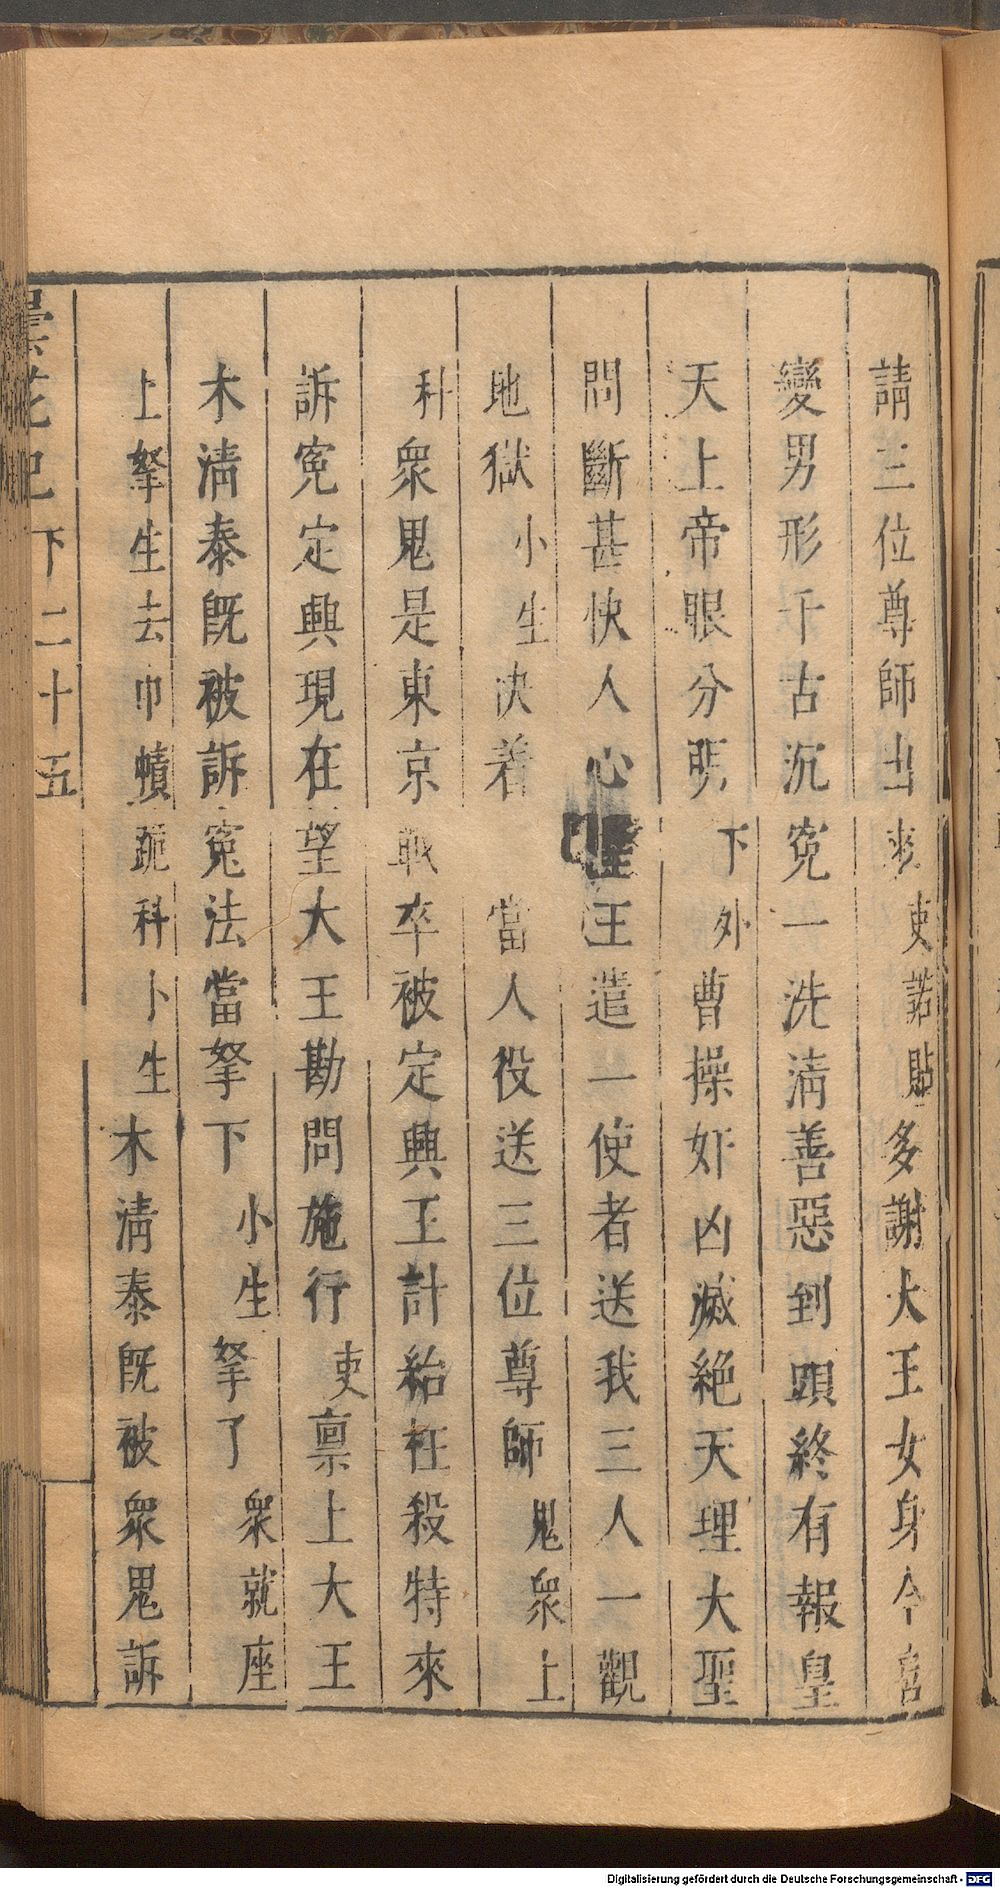 請三位尊師出來吏諾貼多謝大王女身今喜
變男形千古沉寃一洗淸善惡到頭終有報皇
天上帝眼分明下外曹操奸凶滅絕天理大聖
問斷甚快人心望王遣一使者送我三人一觀
地獄小生決着當人役送三位尊師鬼衆上
科衆鬼是東京戰卒被定興王計紿枉殺特來
訴寃定興現在望大王勘問施行吏禀上大王
木淸泰旣被訴寃法當拏下小生拏了衆就座
上拏生去巾幘跪科卜生木淸泰旣被衆鬼訴
曇花記 下二十五
Digitalisierung gefördert durch die Deutsche Forschungsgemeinschaft - DFG